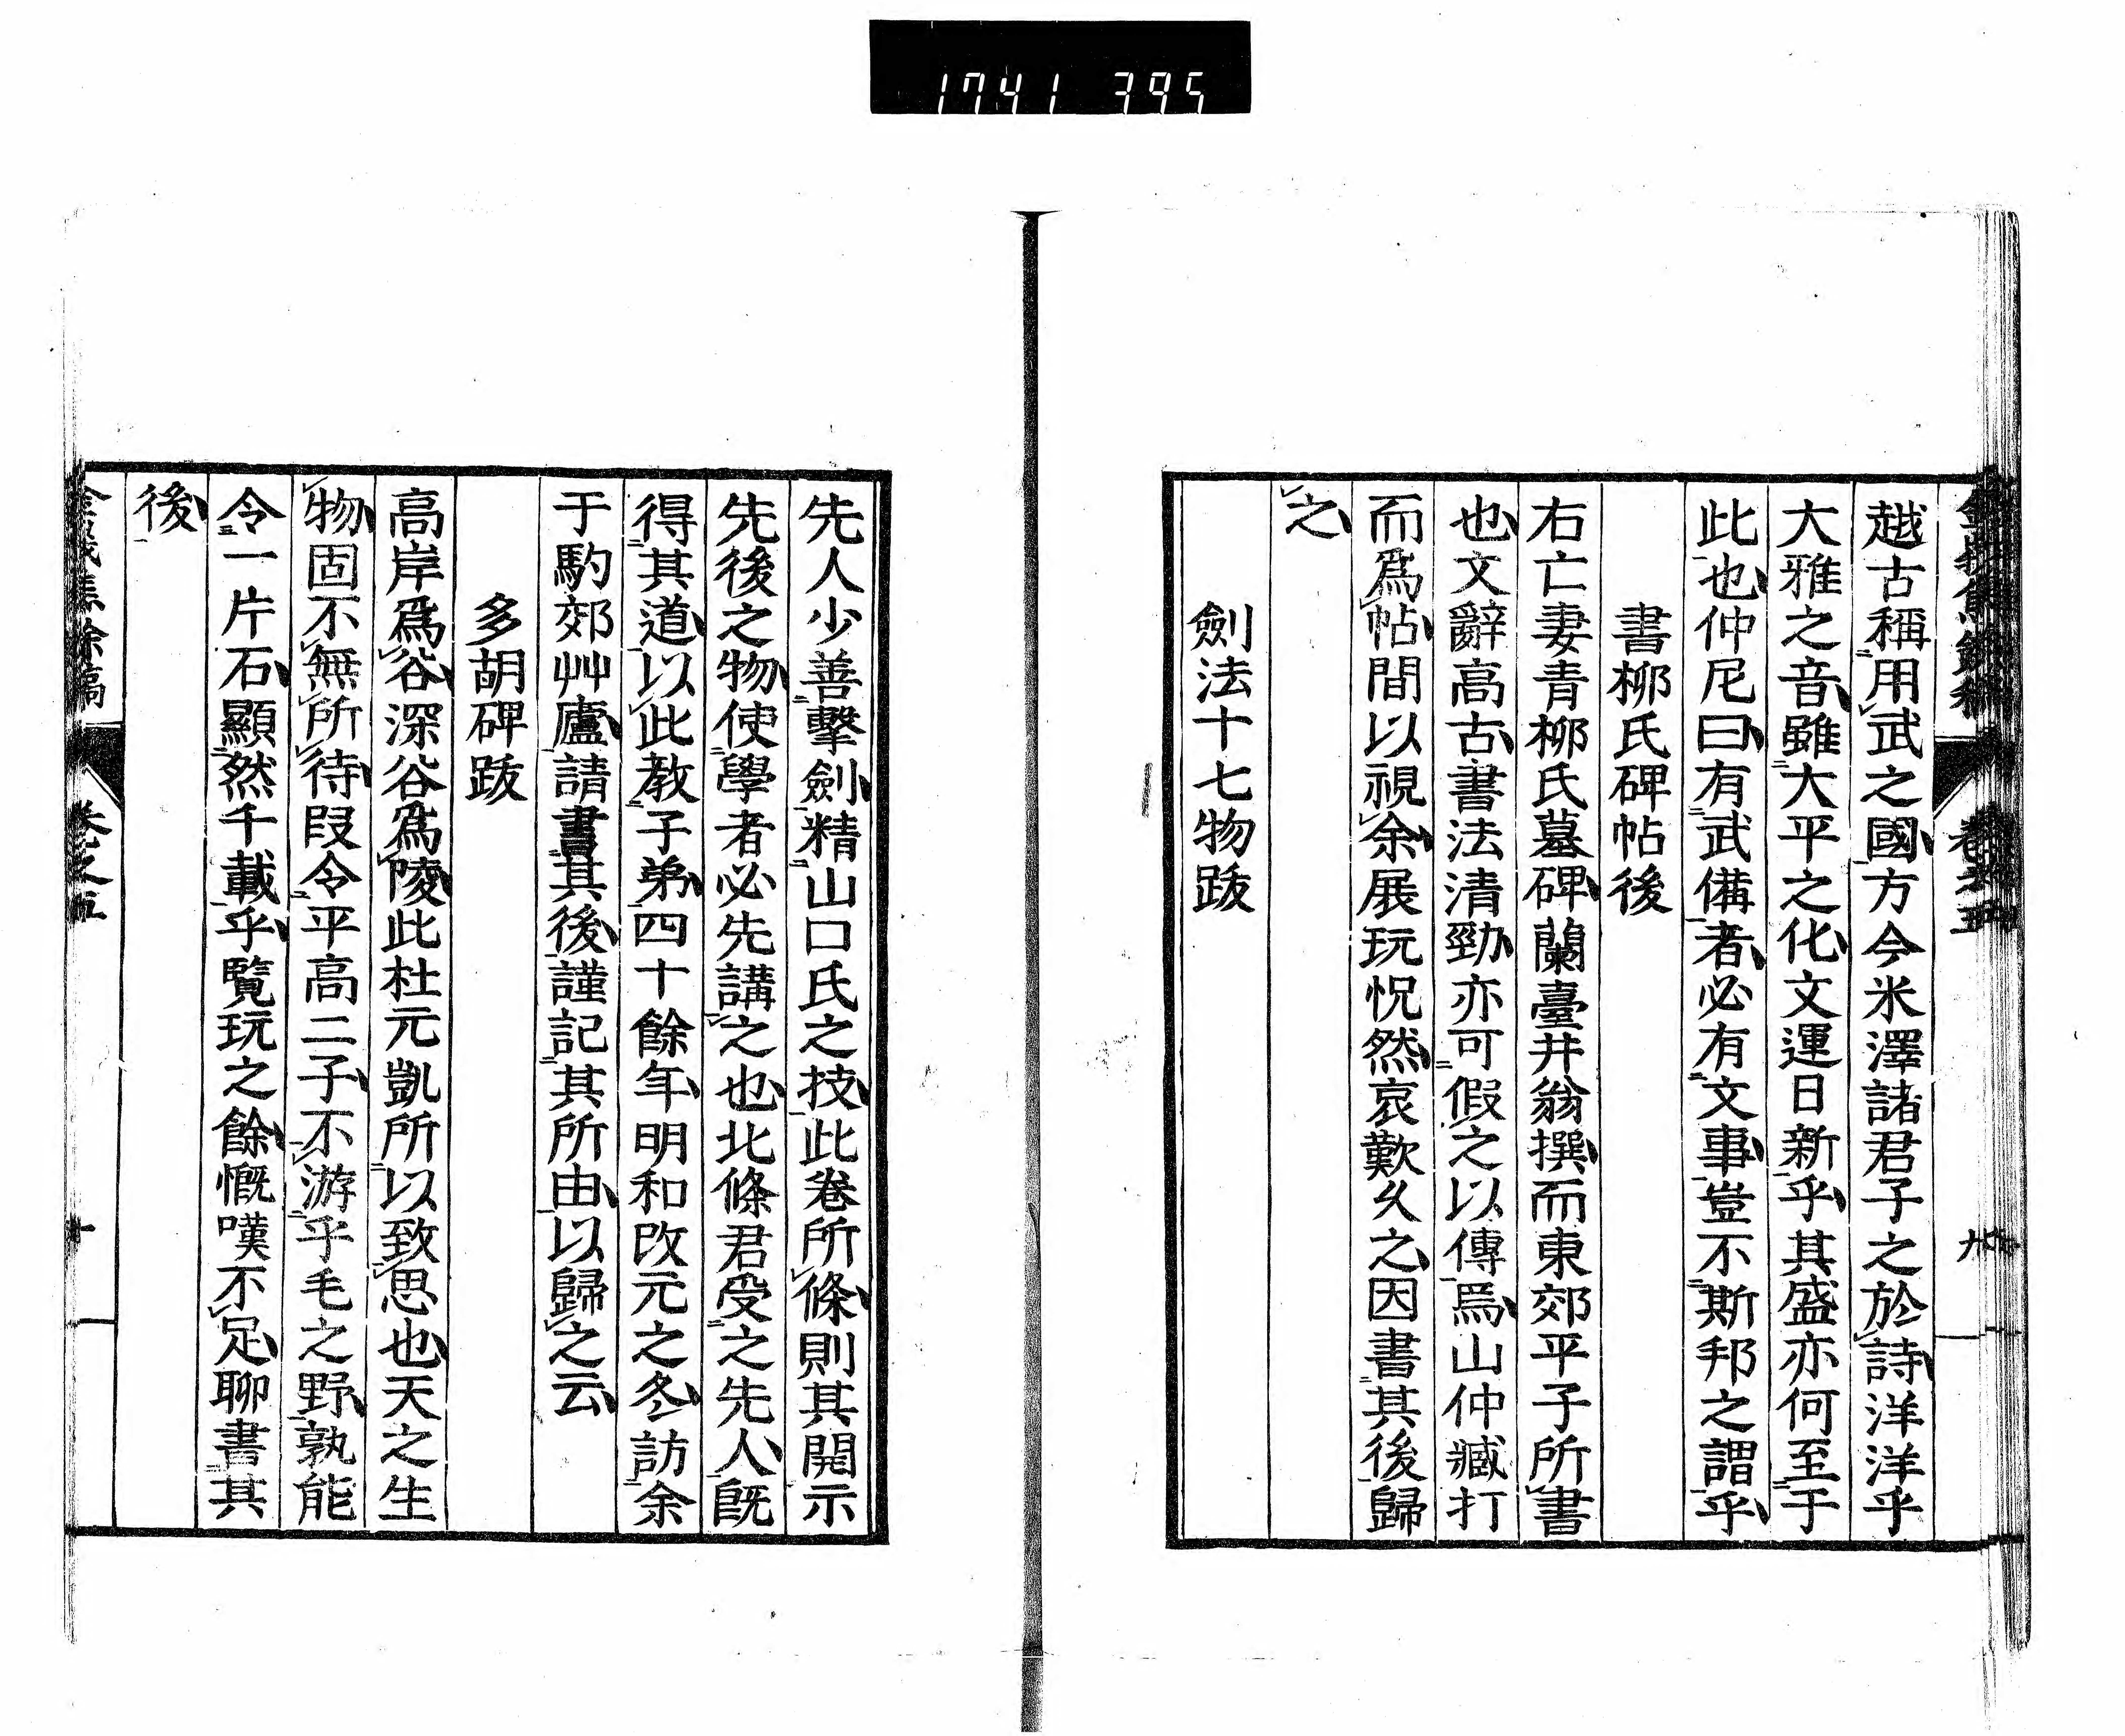 1741 395
越古稱用武之國方今米澤諸君子之於詩洋洋乎
大雅之音雖大平之化文運日新乎其盛亦何至于
此也仲尼曰有武備者必有文事豈不斯邦之謂乎
書柳氏碑帖後
右亡妻青柳氏墓碑蘭臺井翁撰而東郊平子所書
也文辭高古書法清勁亦可假之以傳焉山仲臧打
而爲帖間以視余展玩怳然哀歎久之因書其後歸
之
劍法十七物跋
先人少善擊劍精山口氏之技此卷所條則其開示
先後之物使學者必先講之也北條君受之先人既
得其道以此教子弟四十餘年明和改元之冬訪余
于馰郊艸廬請書其後謹記其所由以歸之云
多胡碑跋
高岸爲谷深谷爲陵此杜元凱所以致思也天之生
物固不無所待叚令平高二子不游乎毛之野孰能
令一片石顯然千載乎覽玩之餘慨嘆不足聊書其
後
卷之五